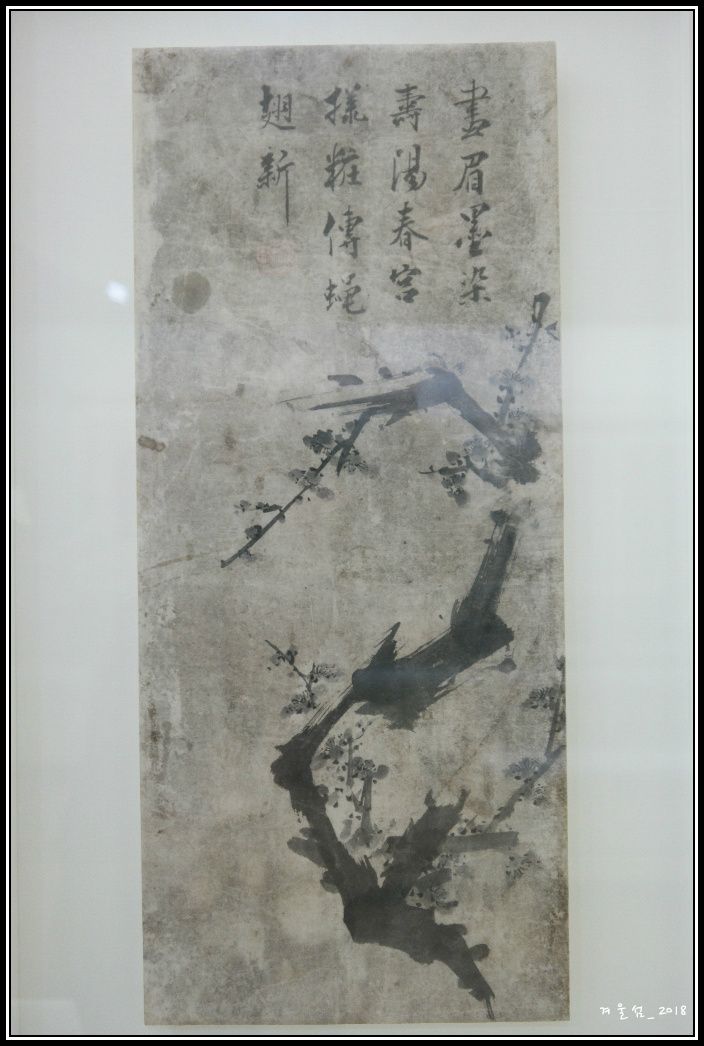 畫眉墨染
壽陽春宮
様粧傳蝇
翅新
겨울섬_2018